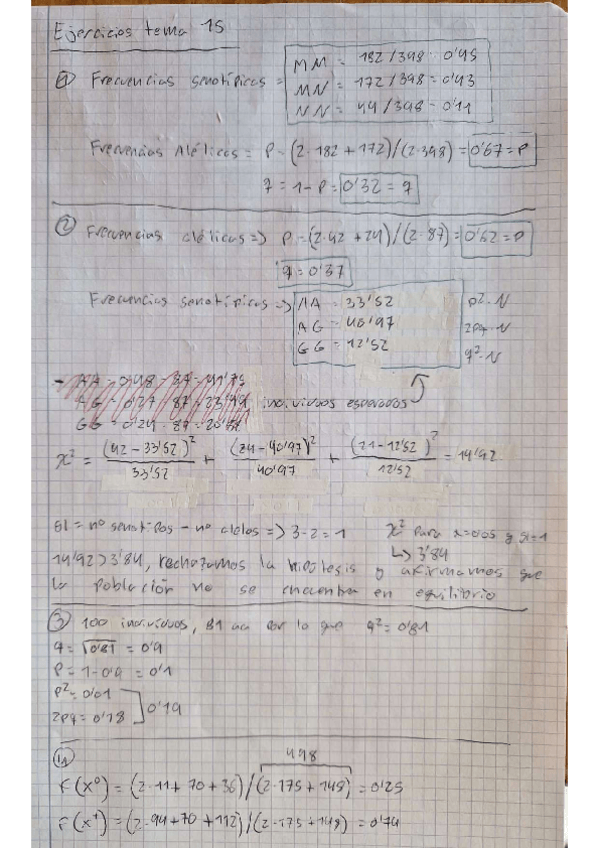 Ejercicios tema 15
① Frecuencias genotípicas =
MM = 182/398 = 0'45
MN = 172/398 = 0'43
NN = 44/398 = 0'11
Frecuencias Alélicas = P = (2·182 + 172)/(2·398) = 0'67 = P
q = 1 - P = 0'32 = q
② Frecuencias alélicas => P = (2·42 + 24)/(2·87) = 0'62 = P
q = 0'37
Frecuencias genotípicas => AA = 33'52 p²·N
AG = 40'97 2pq·N
GG = 12'52 q²·N
individuos esperados
χ² = (42 - 33'52)²/33'52 + (24 - 40'97)²/40'97 + (21 - 12'52)²/12'52 = 14'92
gl = nº genotipos - nº alelos => 3 - 2 = 1 χ² para α=0'05 y gl=1
↳ 3'84
14'92 > 3'84, rechazamos la hipótesis y afirmamos que
la población no se encuentra en equilibrio
③ 100 individuos, 81 aa por lo que q² = 0'81
q = √0'81 = 0'9
P = 1 - 0'9 = 0'1
P² = 0'01
2pq = 0'18 ] 0'19
498
F(x⁰) = (2·11 + 70 + 36)/(2·175 + 148) = 0'25
F(x⁺) = (2·94 + 70 + 112)/(2·175 + 148) = 0'74